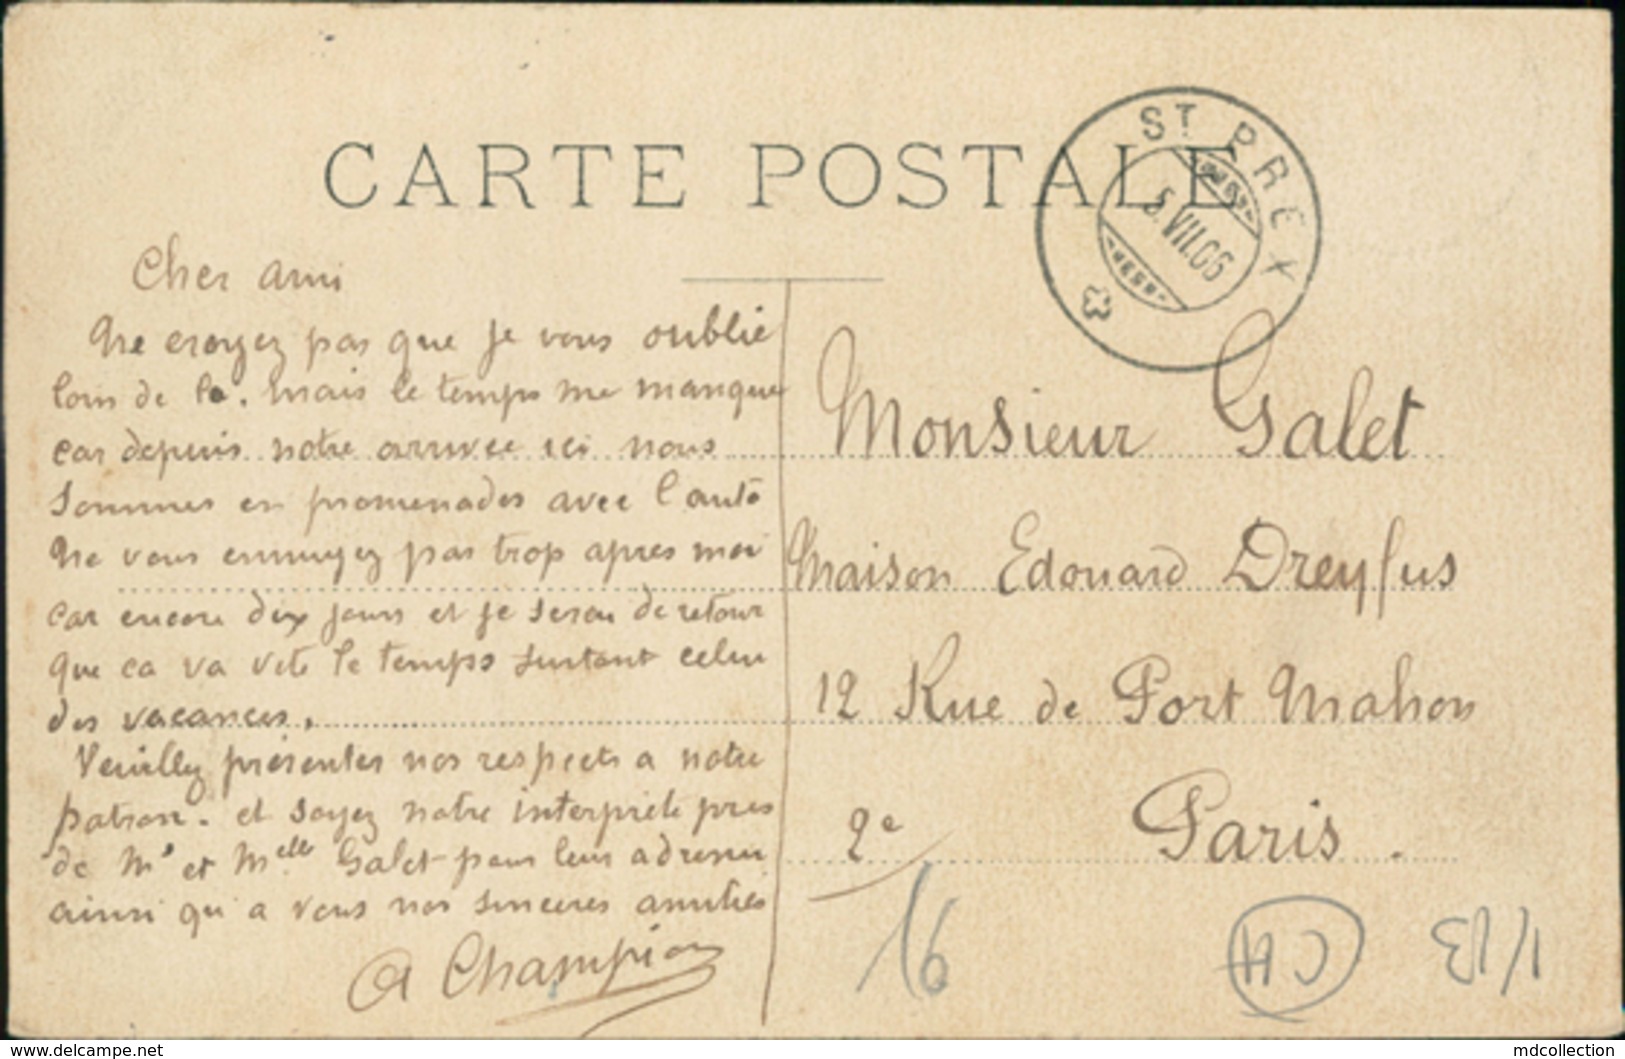 CARTE POSTALE
ST PREX
5.VII.06
Cher ami
Ne croyez pas que je vous oublie
loin de la. mais le temps me manque
car depuis notre arrivee ici nous
sommes en promenades avec l'auto
Ne vous ennuyez pas trop apres moi
car encore dix jours et je serai de retour
que ca va vite le temps surtout celui
des vacances.
Veuillez presenter nos respects a notre
patron. et soyez notre interprete pres
de Mr et Melle Galet pour leur adresser
ainsi qu a vous nos sinceres amities
A Champion
Monsieur Galet
Maison Edouard Dreyfus
12 Rue de Port Mahon
2e Paris.
16
CH
1/13
www.delcampe.net
mdcollection